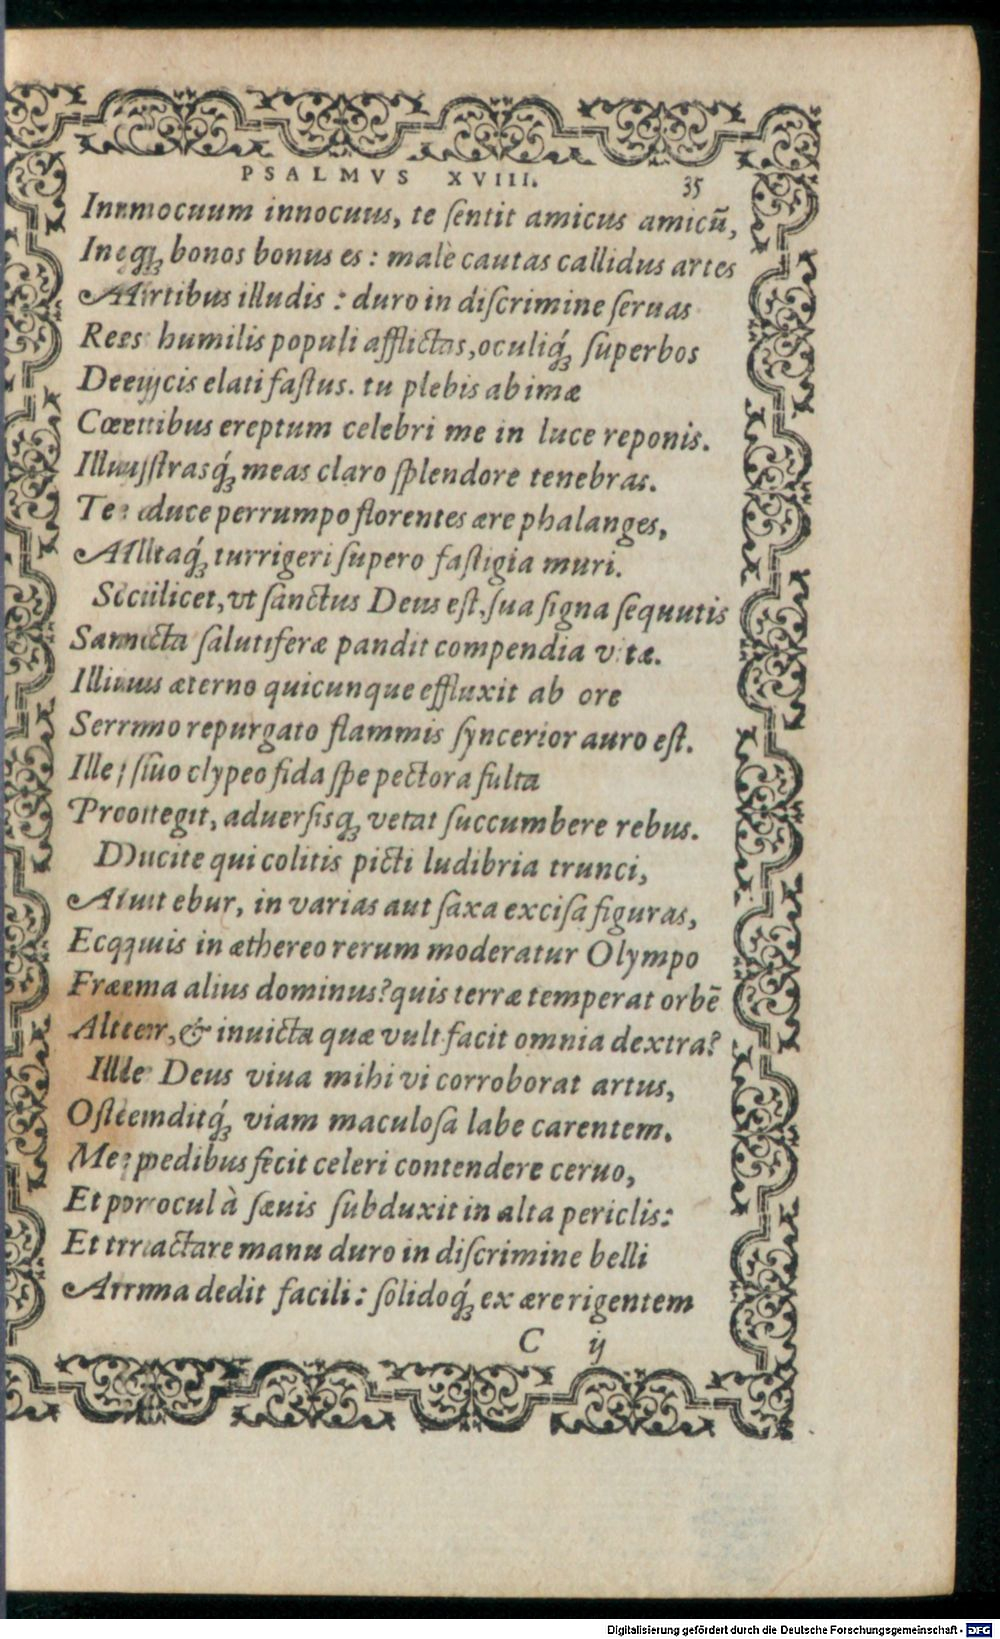 PSALMVS XVIII. 35
Innocuum innocuus, te ſentit amicus amicū,
Inq́ꝫ bonos bonus es : malè cautas callidus artes
Artibus illudis : duro in diſcrimine ſeruas
Res humilis populi afflictas, oculiq́ꝫ ſuperbos
Deijcis elati faſtus. tu plebis ab imæ
Cœtibus ereptum celebri me in luce reponis.
Illuſtrasq́ꝫ meas claro ſplendore tenebras.
Te duce perrumpo florentes ære phalanges,
Altaq́ꝫ turrigeri ſupero faſtigia muri.
Scilicet, vt ſanctus Deus eſt, ſua ſigna ſequutis
Sancta ſalutiferæ pandit compendia vitæ.
Illius æterno quicunque effluxit ab ore
Sermo repurgato flammis ſyncerior auro eſt.
Ille ſuo clypeo fida ſpe pectora fulta
Protegit, aduerſisqꝫ vetat ſuccumbere rebus.
Dicite qui colitis picti ludibria trunci,
Aut ebur, in varias aut ſaxa exciſa figuras,
Ecquis in æthereo rerum moderatur Olympo
Fræna alius dominus? quis terræ temperat orbē
Alter, & inuicta quæ vult facit omnia dextra?
Ille Deus viua mihi vi corroborat artus,
Oſtenditq́ꝫ viam maculoſa labe carentem.
Me pedibus fecit celeri contendere ceruo,
Et procul à ſæuis ſubduxit in alta periclis:
Et tractare manu duro in diſcrimine belli
Arma dedit facili : ſolidoq́ꝫ ex ære rigentem
C ij
Digitalisierung gefördert durch die Deutsche Forschungsgemeinschaft - DFG